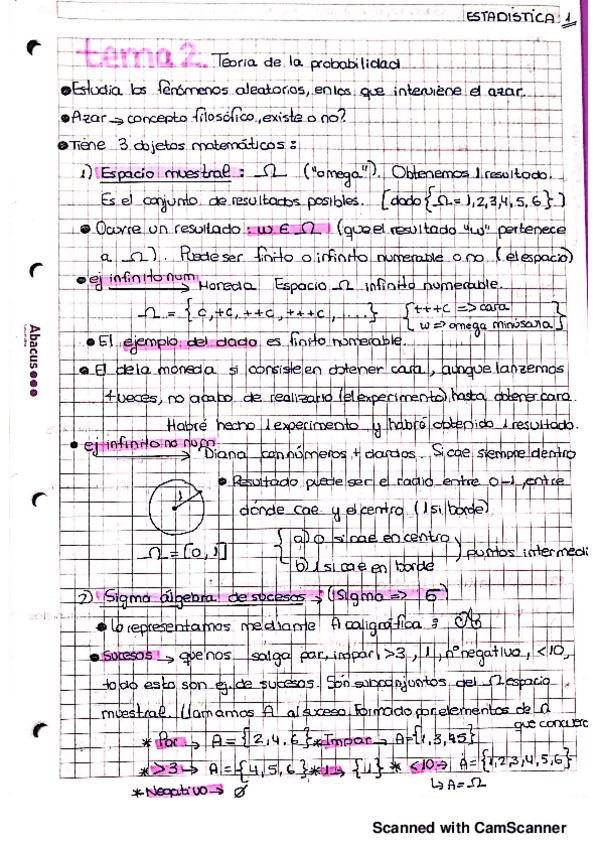 ESTADÍSTICA: 1
tema 2. Teoría de la probabilidad
• Estudia los fenómenos aleatorios, en los que interviene el azar.
• Azar → concepto filosófico, existe o no?
• Tiene 3 objetos matemáticos:
1) Espacio muestral: Ω ("omega"). Obtenemos 1 resultado.
Es el conjunto de resultados posibles. [dado {Ω = 1,2,3,4,5,6}]
• Ocurre un resultado: w ∈ Ω (que el resultado "w" pertenece
a Ω). Puede ser finito o infinito numerable o no (el espacio)
• ej infinito num → Moneda Espacio Ω infinito numerable.
Ω = {c, +c, ++c, +++c, ....} {+++c => cara
w => omega minúscula}
• El ejemplo del dado es finito numerable.
• El de la moneda si consiste en obtener cara, aunque lanzemos
4 veces, no acabo de realizarlo (el experimento) hasta obtener cara.
Habré hecho 1 experimento y habré obtenido 1 resultado.
• ej infinito no num → Diana con números + dardos. Si cae siempre dentro
• Resultado puede ser el radio entre 0-1, entre
dónde cae y el centro (1 si borde)
1
Ω = [0,1] { a) 0 si cae en centro
b) 1 si cae en borde ) puntos intermedi
2) Sigma álgebra de sucesos: (Sigma => 6)
• Lo representamos mediante A caligráfica: A
• Sucesos → que nos salga par, impar, >3, 1, nº negativo, <10,
todo esto son ej. de sucesos. Son subconjuntos del Ω espacio
muestral. Llamamos A al suceso formado por elementos de Ω
* Par → A = {2,4,6} * Impar → A = {1,3,45}
* >3 → A = {4,5,6} * 1 → {1} * <10 → A = {1,2,3,4,5,6}
* Negativo → ∅ ↳ A = Ω
Abacus
Scanned with CamScanner